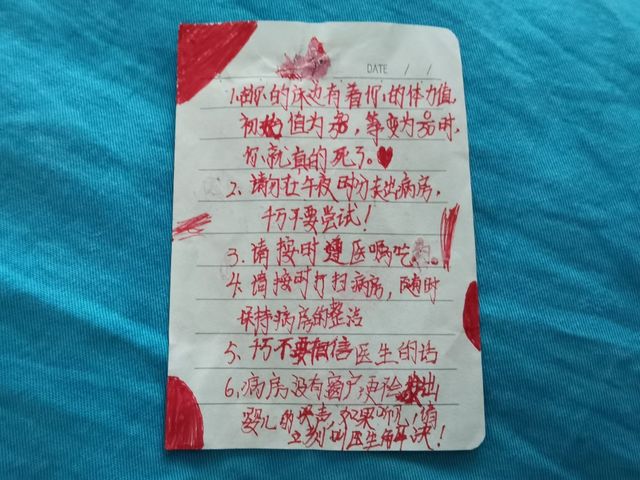 DATE / /
1.由你的床边有着你的体力值,
初始值为,等变为时,
你就真的死了。
2、请勿在午夜时分走出病房,
千万不要尝试!
3、请按时遵医嘱吃
4、请按时打扫病房,随时
保持病房的整洁
5、千万不要相信医生的话
6、病房没有窗户更
婴儿的哭声,如果听,请
立刻叫医生解决!